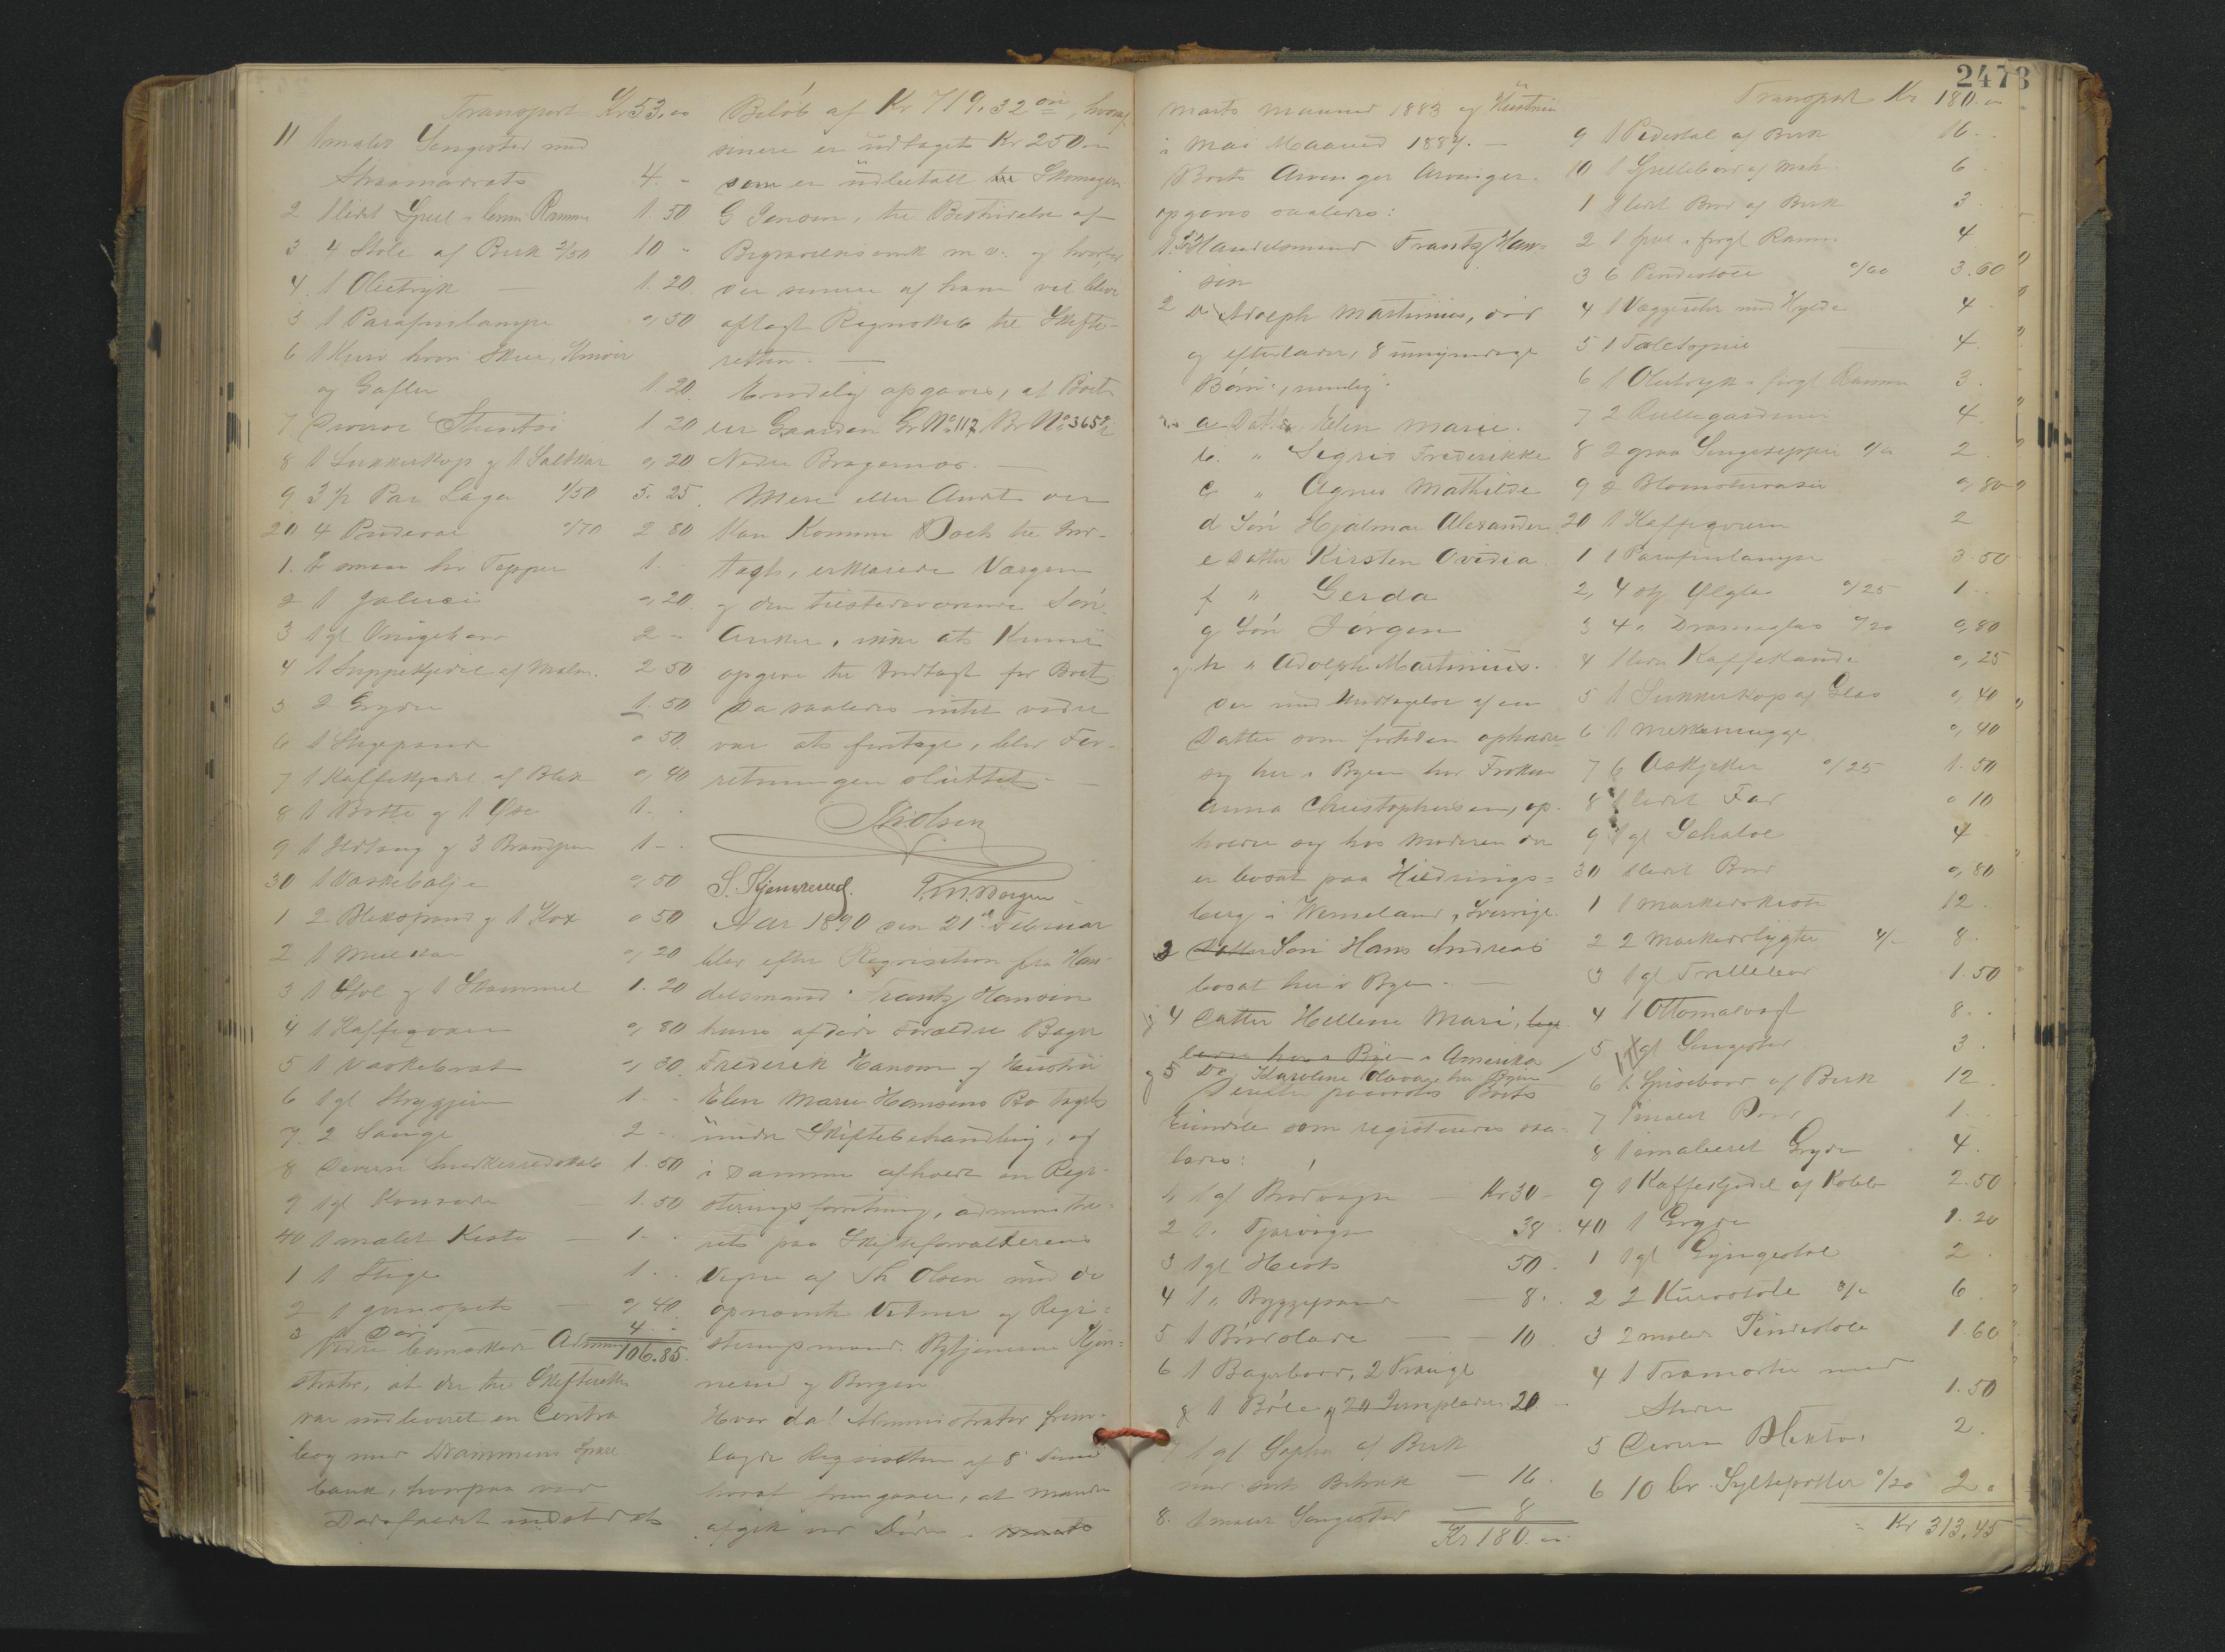 Transport Kr 53,00
11 1 malet Sengested med
Straamadrats 4. -
2 1 lidet Speil i brun Ramme 1. 50
3 4 Stole af Birk 2/50 10 -
4. 1 Olietryk — 1. 20
5 1 Parafinlampe 0, 50
6 1 Kurv hvori Skeer, Knive
og Gafler 1. 20
7 Diverse Stentøi 1 20
8 1 Sukkerkop og 1 Saltkar 0, 20
9 3 1/2 Par Lagen 1/50 5. 25
20 4 Pudevar 0/70 2 80
1. 2 smaa Tepper 1. -
2 1 Jalusi 0, 20
3 1 gl 2 -
4 1 Suppekjedel af Malm. 2 50
5 2 Gryder 1. 50
6 1 Stegepande 0 50
7 1 Kaffekjedel af Blik 0, 40
8 1 Bøtte og 1 Øse 1. -
9 1 Ildtang og 3 1 -
30 1 Vaskebalje 0, 50
1 2 Blikspand og 1 0 50
2 1 0, 20
3 1 Stol og 1 Skammel 1. 20
4 1 Kaffeqværn 0, 80
5 1 Vaskebræt 0, 30
6 1 gl Strygejern 1. -
7. 2 Senge 2 -
8 Diverse Snedkerredskab 1. 50
9 1 gl Komode 1. 50
40 1 malet Kiste — 1. -
1 1 Stige 1. -
2 1 — 0, 40
3 1 Dør 4. -
106.85
Videre bemærkede Admini
strator, at der til Skifteretten
var indleveret en Contra
bog med Drammens Spare
bank, hvorpaa ved
Dødsfaldet indestod et
Beløb af Kr 719,32 øre, hvoraf
senere er udtaget Kr 250,00
som er udbetalt til Skomager
G Jensen, til Bestridelse af
Begravelsesomk m. v. og hvorfor
der senere af ham vil blive
aflagt Regnskab til Skifte-
retten. —
Endelig opgaves, at Boet
eier Gaarden Gr No 117 Br No 365
Nedre Bragernæs. —
Mere eller Andet der
kan komme Boet til Ind-
tægt, erklærede Værgen
og den tilstedeværende Søn
Anker, ikke at kunne
opgive til Indtægt for Boet.
Da saaledes intet videre
var at foretage, blev For-
retningen sluttet. —
Th. Olsen
S. Kjennerud. T. M. Borgen
Aar 1890 den 21de Februar
blev efter Requisition fra Han-
delsmand Frantz Hansen
hans afdøde Forældre Bager
Frederik Hansen og Hustru
Elen Marie Hansens Bo taget
under Skiftebehandling, og
i samme afholdt en Regi-
streringsforretning, administre-
ret paa Skifteforvalterens
Vegne af Th Olsen med de
opnævnte Vidner og Regi-
streringsmænd. Bytjenerne Kjen-
nerud og Borgen
Hvor da! Administrator frem-
lagde Requisition af 8 ds
hvoraf fremgaaer, at Manden
afgik ved Døden i
2473
Marts Maaned 1883 og Hustruen
i Mai Maaned 1887. —
Boets Arvinger
opgaves saaledes:
1. Søn Handelsmand Frantz Han-
sen
2 Do Adolph Martinius, død
og efterlader, 8 umyndige
Børn, nemlig:
a Datter Elen Marie.
b. " Sigrid Frederikke
c " Agnes Mathilde
d Søn Hjalmar Alexander
e Datter Kirsten Ovidia
f " Gerda
g Søn Jørgen
og h " Adolph Martinius.
der med Undtagelse af en
Datter som fortiden opholder
sig her i Byen hos Frøken
Anna Christophersen, op-
holder sig hos Moderen der
er bosat paa Hildrings-
berg i Wermeland, Sverige.
3 Datter Søn Hans Andreas
bosat her i Byen. —
og 4 Datter Hellene Mari, bor
her i Byen i Amerika
og 5 Do Karoline Olava, her Byen
Derefter paavistes Boets
Eiendele som registreredes saa-
ledes:
1 1 gl Brødvogn — Kr 30 -
2 1 " 38 -
3 1 gl Hest 50 -
4 1 " — 8 -
5 1 — 10
6 1 Bagerbord, 2
og 1 20
7 1 gl Sopha af Birk
med Betræk — 16.
8. 1 malet Sengested — 8
Kr 180.00
Transport Kr 180.00
9 1 Pedestal af Birk 16 -
10 1 Spillebord af Mah. 6
1 1 lidet Bord af Birk 3
2 1 Speil i forgl Ramme 4
3 6 Pindestole 0/60 3.60
4 1 Væggeuhr med Hylde 4
5 1 4.
6 1 Olietryk i forgl Ramme 3.
7 2 Rullegardiner 4.
8 2 graa Sengetepper 1/00 2
9 2 Blomstervaser 0, 80
20 1 Kaffeqværn 2
1 1 Parafinlampe 3.50
2, 4 Ølglas 0/25 1. -
3 4 " Dramsglas 0/20 0, 80
4 1 Kaffekande 0, 25
5 1 Sukkerkop af Glas 0, 40
6 1 Melkemugge 0, 40
7 6 Asietter 0/25 1.50
8 1 lidet Fad 0 10
9 1 gl Schatol 4
30 1 lidet Bord 0, 80
1 1 Markedskiste 12 -
2 2 Markedslygter 4/- 8.
3 1 gl Trillebør 1.50
4 1 8. -
5 1 gl Sengested 3.
6 1 Spisebord af Birk 12
7 1 malet Bord 1. -
8 1 emalieret Gryde 4.
9 1 Kaffekjedel af Kobber 2.50
40 1 Gryde 1. 20
1 1 gl Gyngestol 2.
2 2 Kurvstole 3/00 6
3 2 malede Pindestole 1.60
4 1 Træmorter med
Støder 1.50
5 Diverse Bliktøi 2.
6 10 Syltepotter 0/20 2 "
Kr 313,45